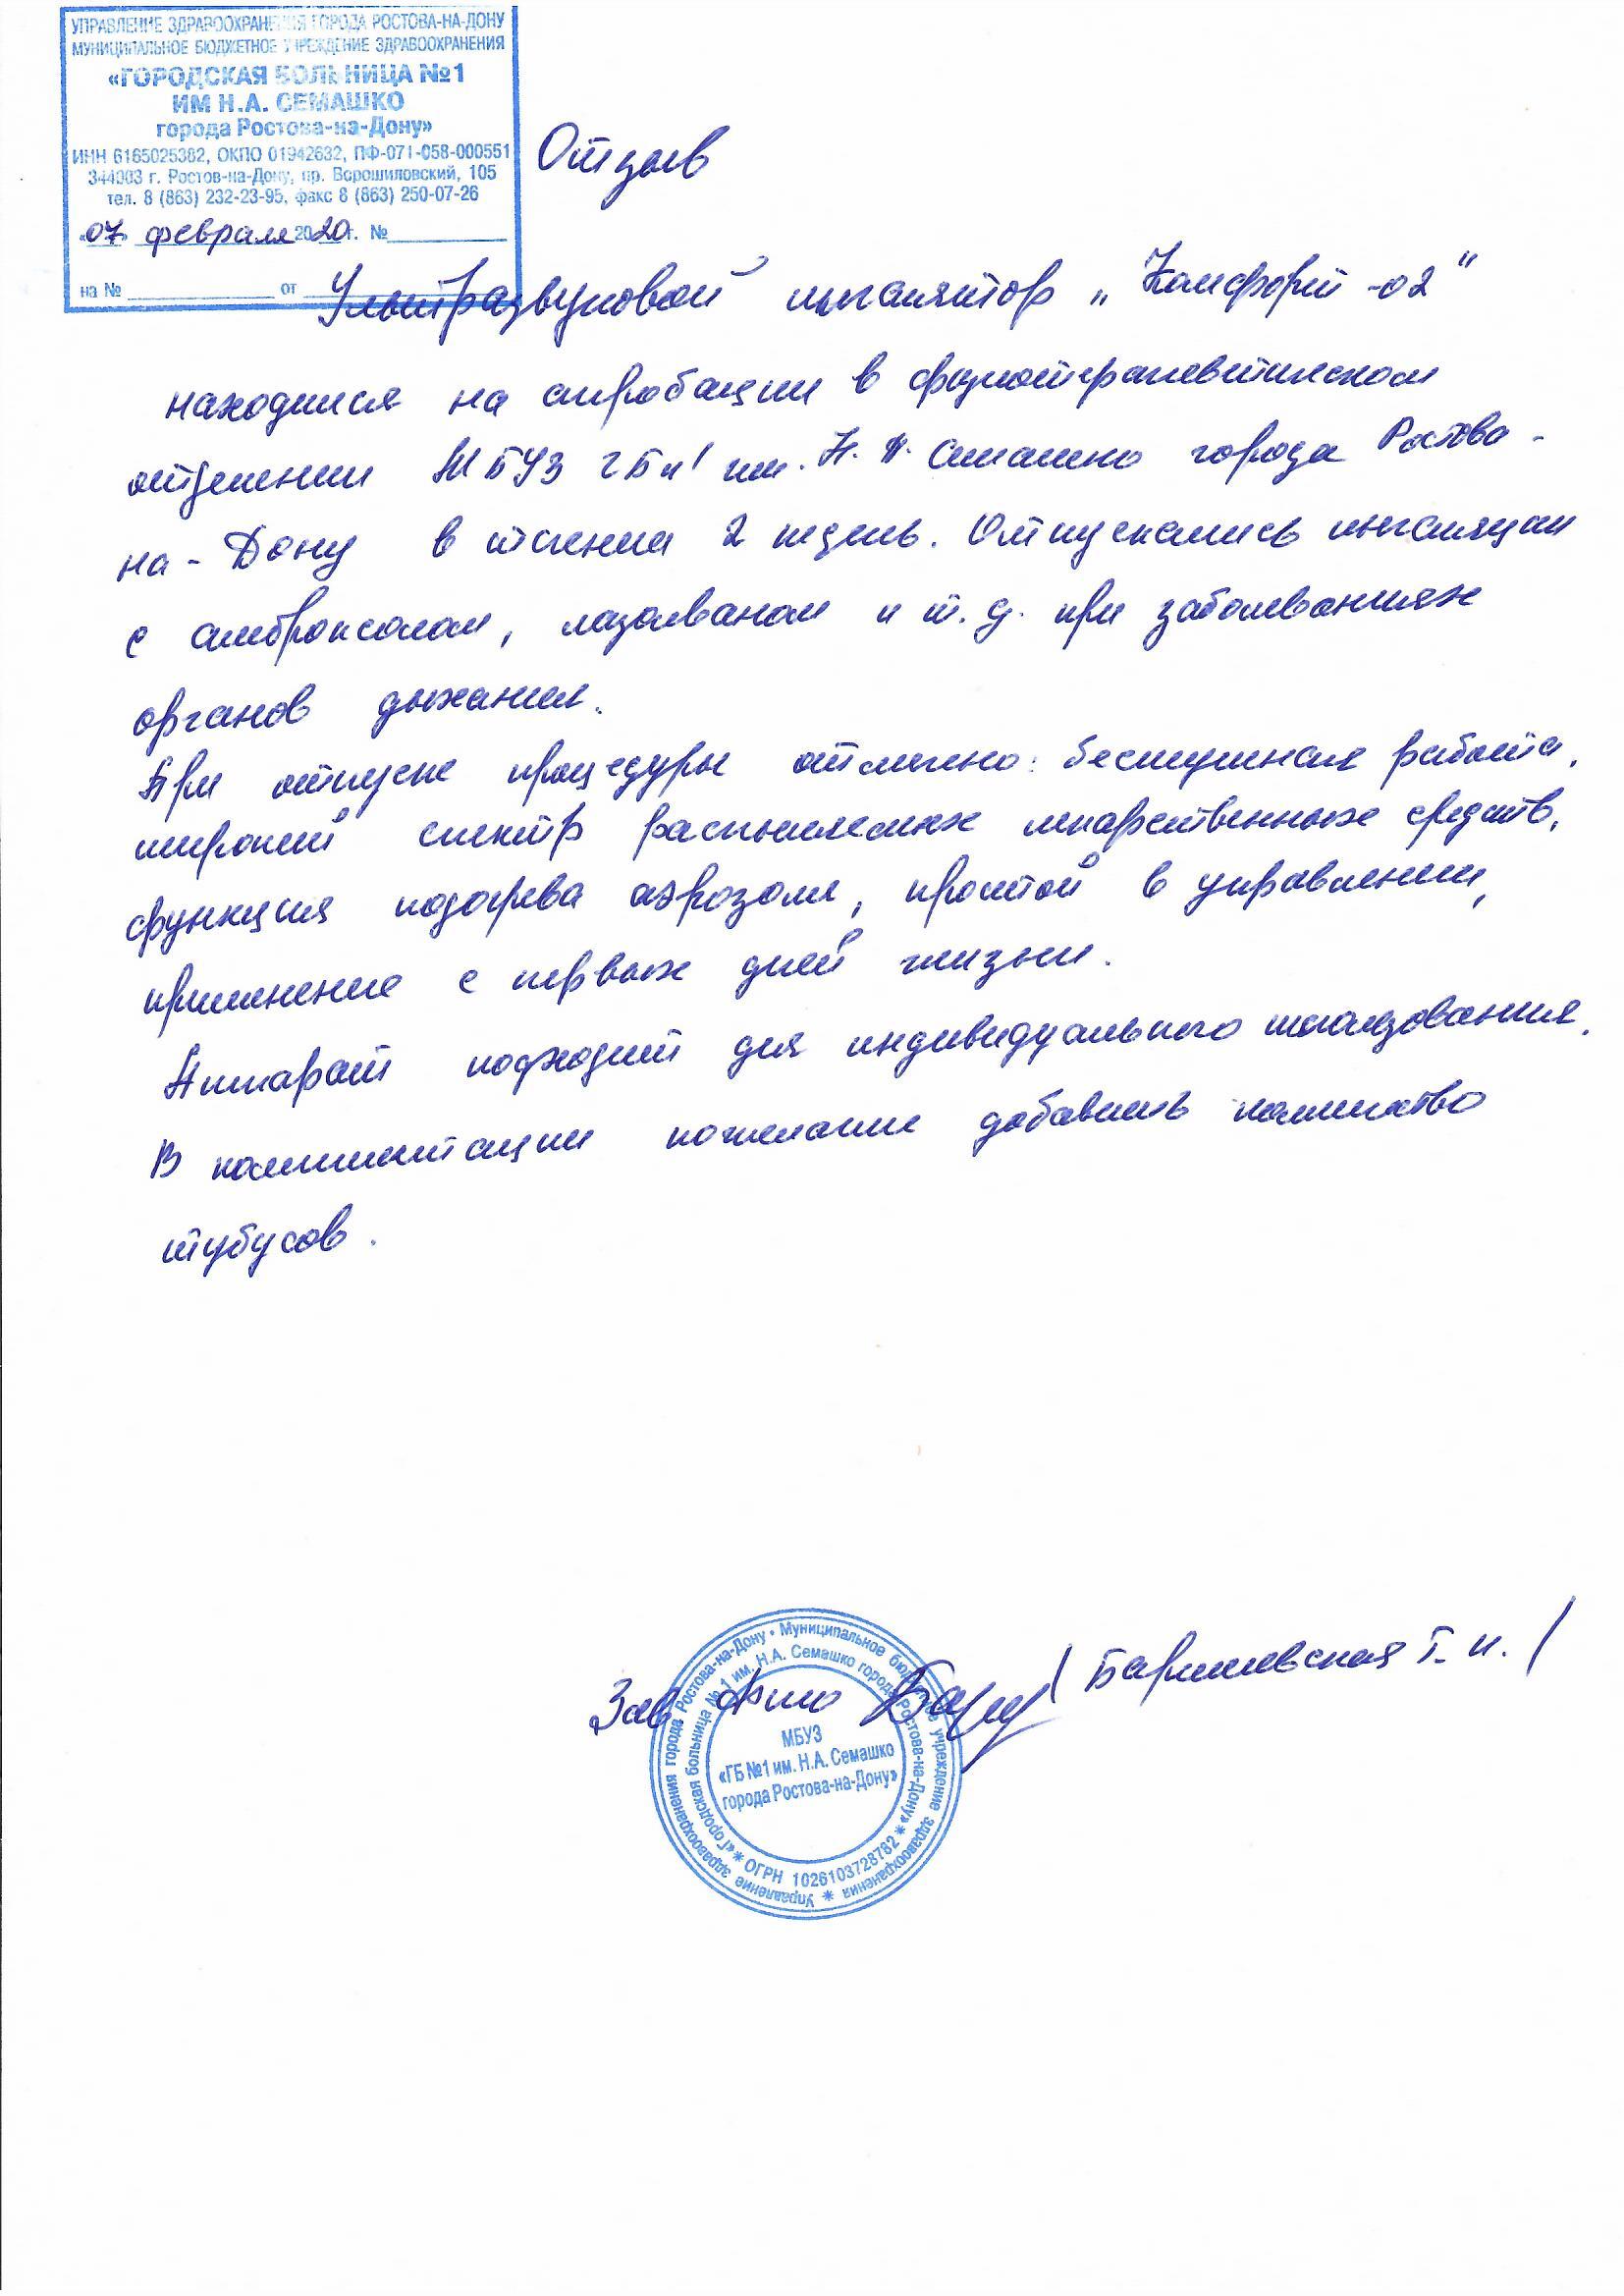 УПРАВЛЕНИЕ ЗДРАВООХРАНЕНИЯ ГОРОДА РОСТОВА-НА-ДОНУ
МУНИЦИПАЛЬНОЕ БЮДЖЕТНОЕ УЧРЕЖДЕНИЕ ЗДРАВООХРАНЕНИЯ
«ГОРОДСКАЯ БОЛЬНИЦА №1
ИМ Н.А. СЕМАШКО
города Ростова-на-Дону»
ИНН 6165025382, ОКПО 01942632, ПФ-071-058-000551
344003 г. Ростов-на-Дону, пр. Ворошиловский, 105
тел. 8 (863) 232-23-95, факс 8 (863) 250-07-26
«07» февраля 2020г. №
на № от
Отзыв
Ультразвуковой ингалятор „Комфорт-02"
находился на апробации в физиотерапевтическом
отделении МБУЗ ГБ№1 им. Н.А. Семашко города Ростова-
на-Дону в течении 2 недель. Отпускались ингаляции
с амброксолом, лазолваном и т.д. при заболеваниях
органов дыхания.
При отпуске процедуры отмечено: бесшумная работа,
широкий спектр распыляемых лекарственных средств,
функция подогрева аэрозоля, простой в управлении,
применение с первых дней жизни.
Аппарат подходит для индивидуального использования.
В комплектации пожелание добавить количество
тубусов.
Зав Фто /Баришевская Т.И./
Управление здравоохранения города Ростова-на-Дону • Муниципальное бюджетное учреждение здравоохранения *
«Городская больница № 1 им. Н.А. Семашко города Ростова-на-Дону» * ОГРН 1026103728782 *
МБУЗ
«ГБ №1 им. Н.А. Семашко
города Ростова-на-Дону»